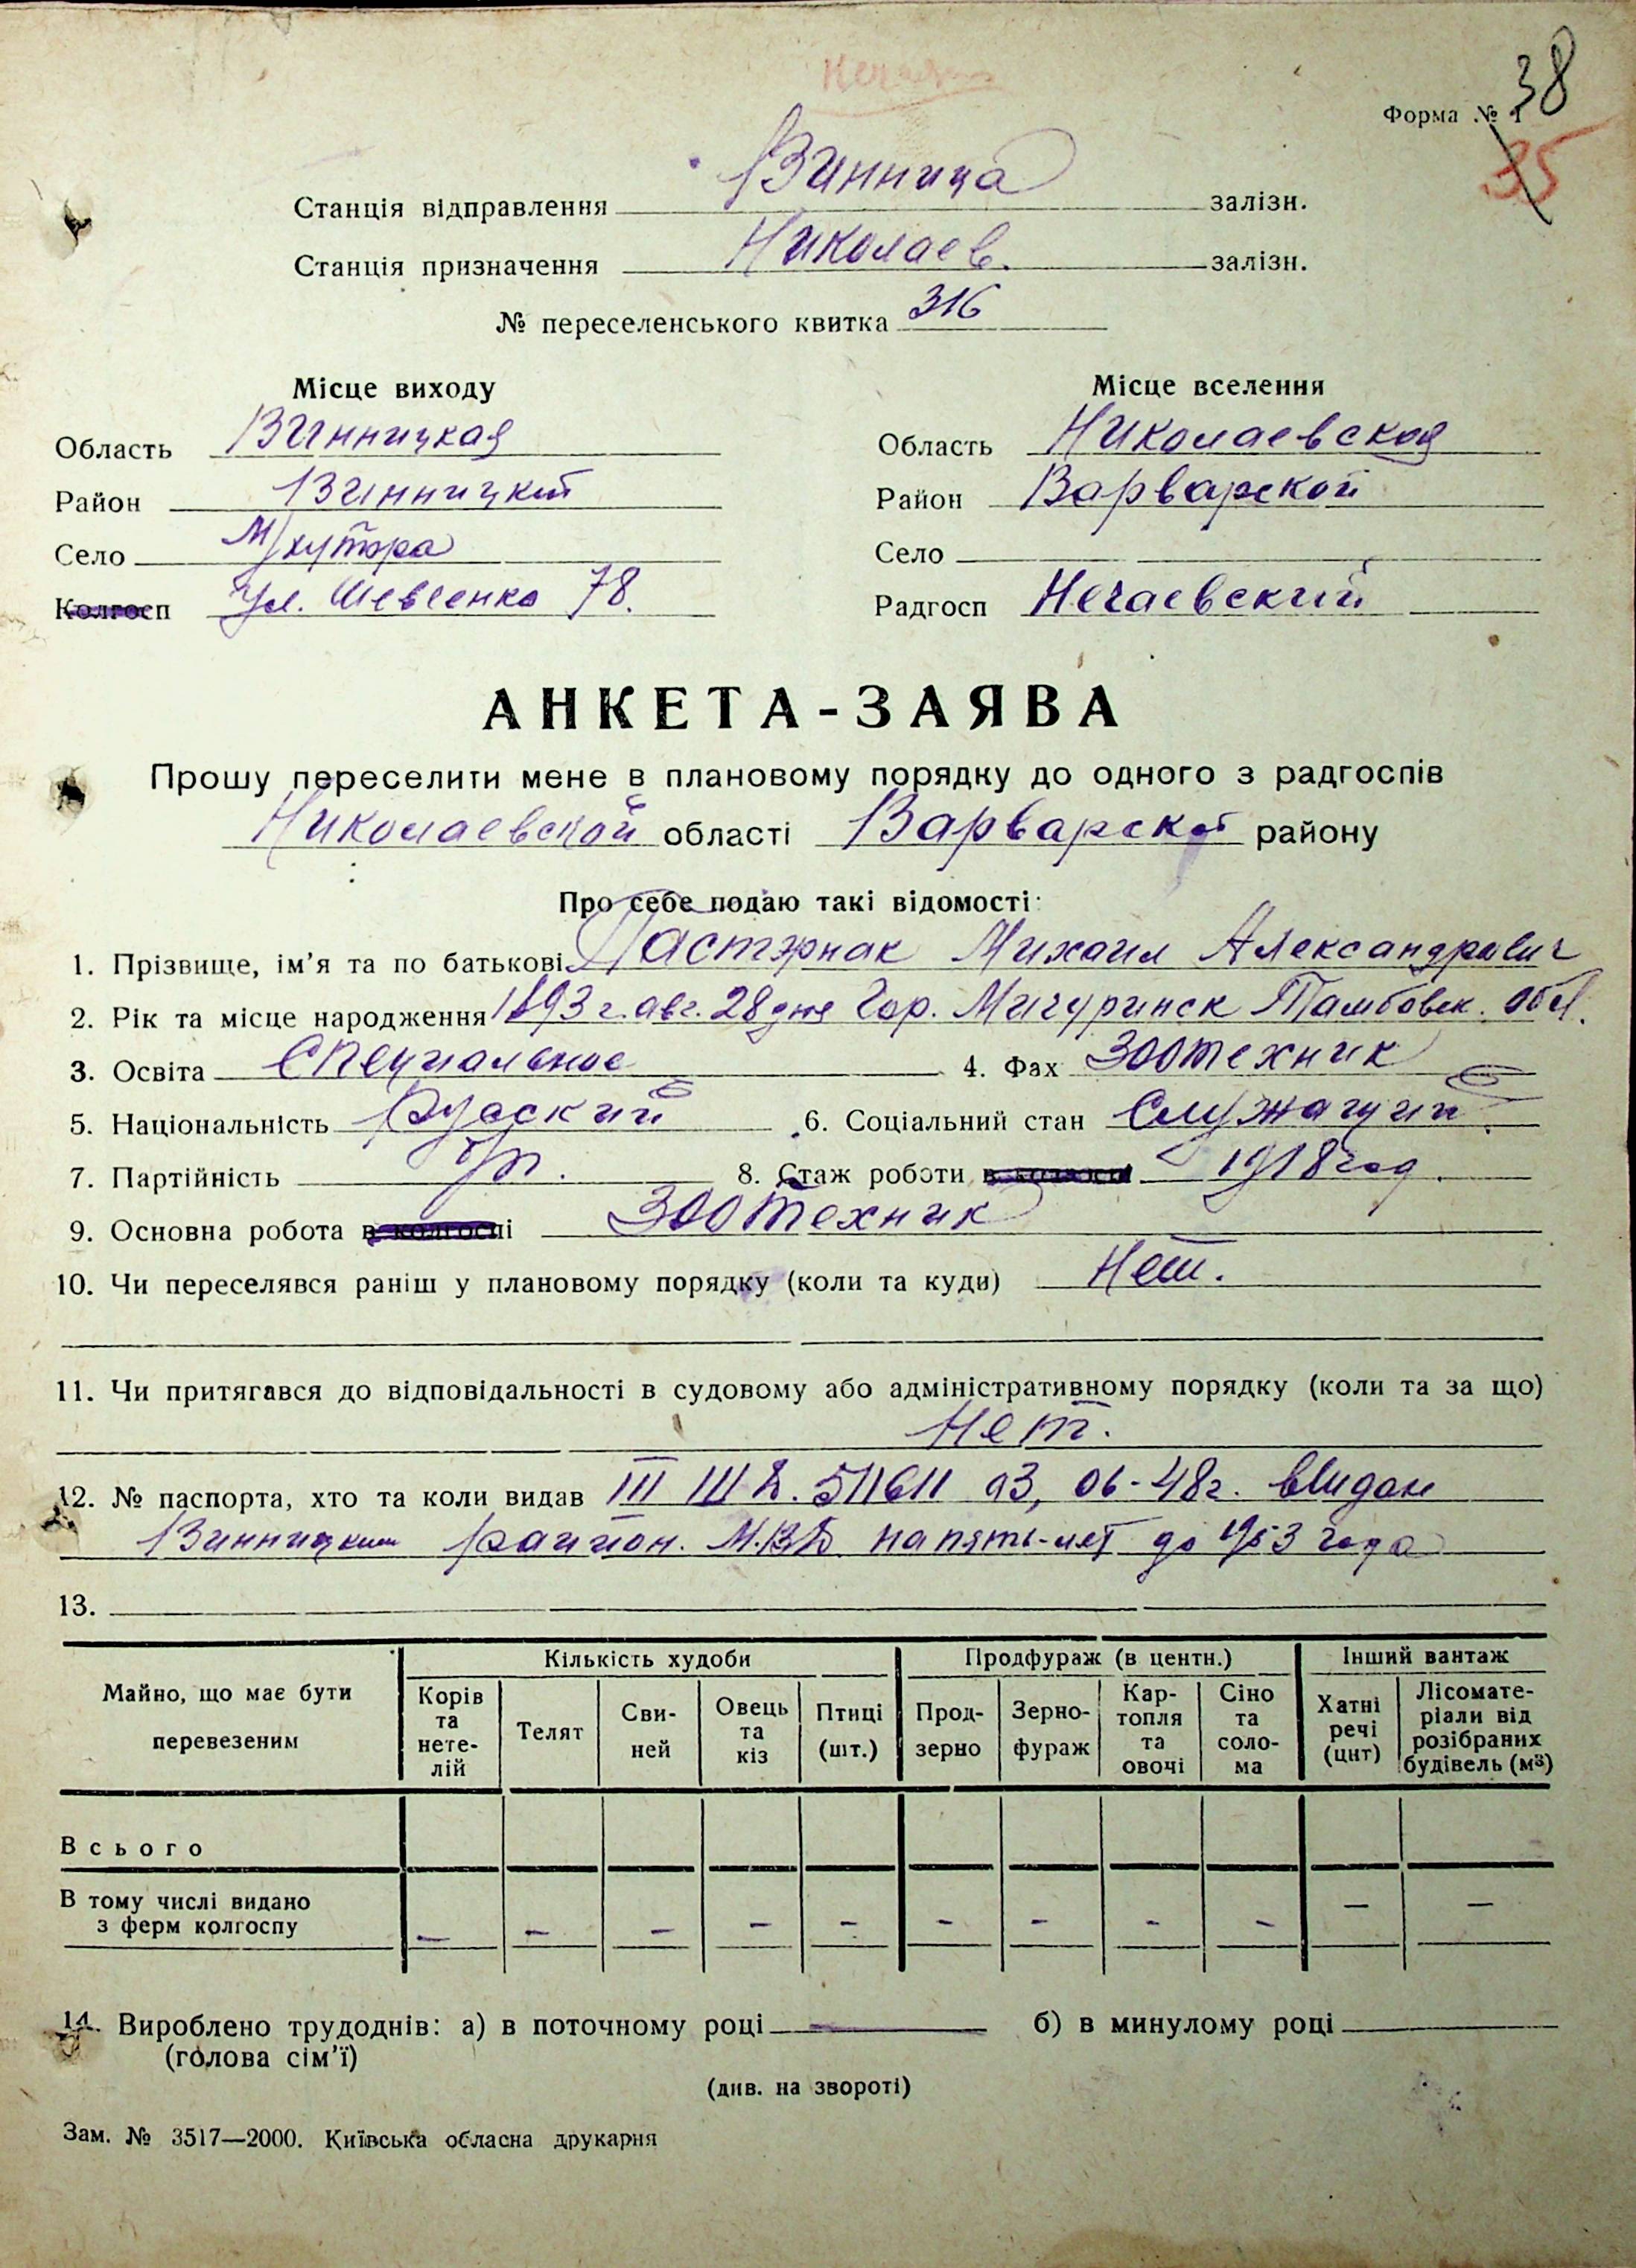 38
Форма № 1
35
Станція відправлення Винница залізн.
Станція призначення Николаев. залізн.
№ переселенського квитка 316
Місце виходу Місце вселення
Область Винницкая Область Николаевской
Район Винницкий Район Варварской
Село М/хутора Село
Колгосп Ул. Шевченко 78. Радгосп Нечаевский
АНКЕТА-ЗАЯВА
Прошу переселити мене в плановому порядку до одного з радгоспів
Николаевской області Варварской району
Про себе подаю такі відомості:
1. Прізвище, ім'я та по батькові Пастернак Михаил Александрович
2. Рік та місце народження 1893 г. авг. 28 дня Гор. Мичуринск Тамбовск. обл.
3. Освіта Специальное 4. Фах Зоотехник
5. Національність Русский 6. Соціальний стан Служащий
7. Партійність 8. Стаж роботи в колгоспі 1918 год.
9. Основна робота в колгоспі Зоотехник
10. Чи переселявся раніш у плановому порядку (коли та куди) Нет.
11. Чи притягався до відповідальності в судовому або адміністративному порядку (коли та за що)
Нет.
12. № паспорта, хто та коли видав III ШД. 511611 03, 06-48г. выдан
Винницким район. М.В.Д на пять-лет до 1953 года
13.
Майно, що має бути перевезеним Кількість худоби Продфураж (в центн.) Інший вантаж
Корів та нете-лій Телят Сви-ней Овець та кіз Птиці (шт.) Прод-зерно Зерно-фураж Кар-топля та овочі Сіно та соло-ма Хатні речі (цнт) Лісомате-ріали від розібраних будівель (м³)
Всього
В тому числі видано
з ферм колгоспу — — — — — — — — — — —
14. Вироблено трудоднів: а) в поточному році — б) в минулому році
(голова сім'ї)
(див. на звороті)
Зам. № 3517—2000. Київська обласна друкарня